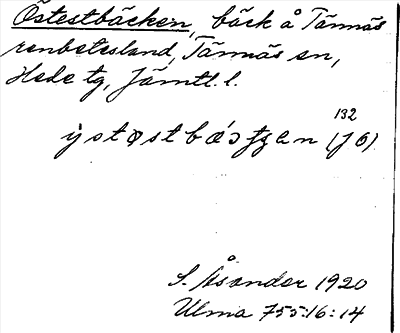 Östestbäcken, bäck å Tännäs
renbetesland, Tännäs sn,
Hede tg, Jämtl. l.
132
(J Ö)
S. Åsander 1920
Ulma 755:16:14